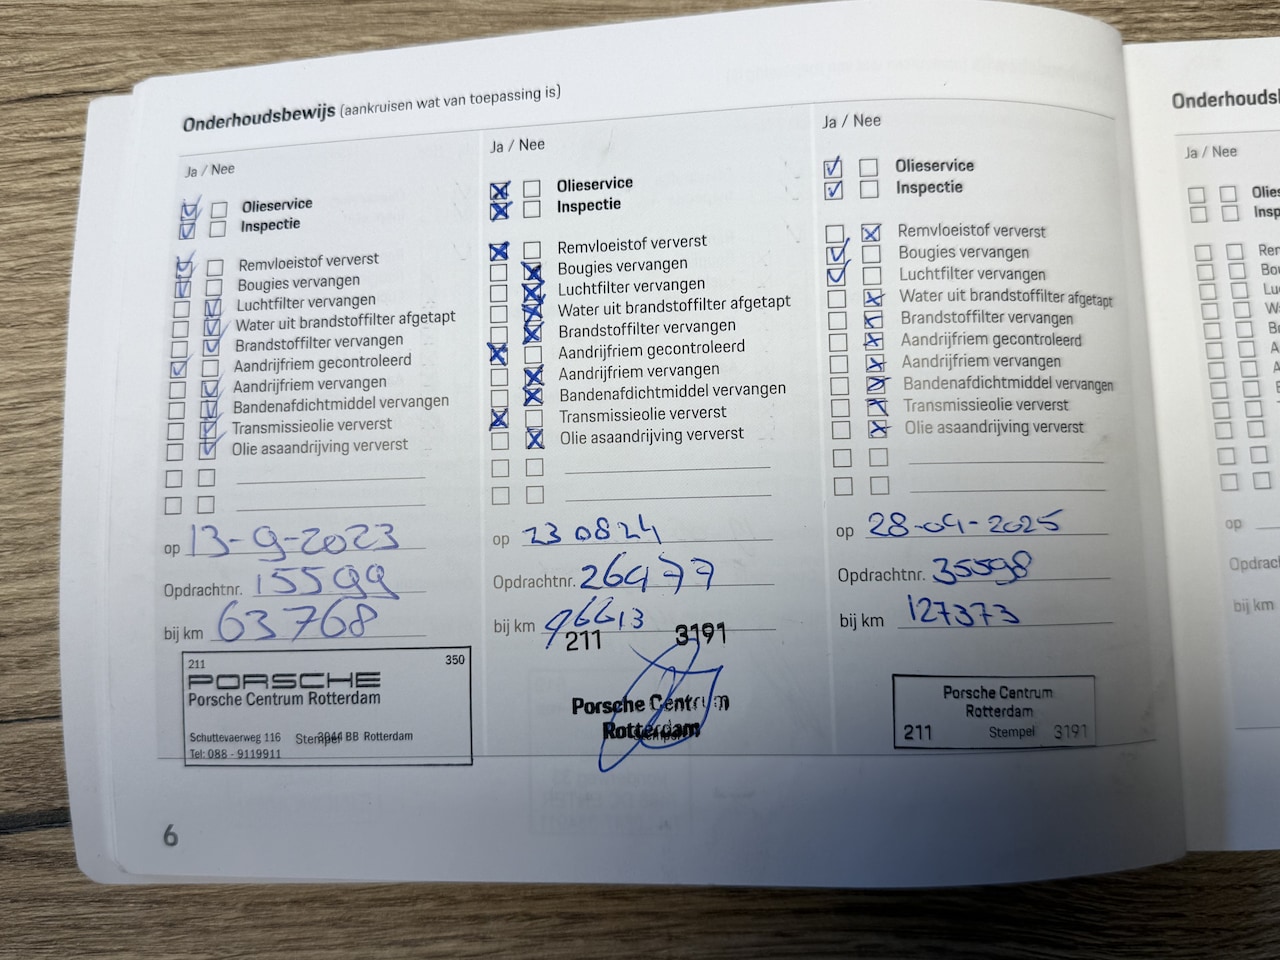 Onderhoudsbewijs (aankruisen wat van toepassing is)
Ja / Nee
Olieservice
Inspectie
Remvloeistof ververst
Bougies vervangen
Luchtfilter vervangen
Water uit brandstoffilter afgetapt
Brandstoffilter vervangen
Aandrijfriem gecontroleerd
Aandrijfriem vervangen
Bandenafdichtmiddel vervangen
Transmissieolie ververst
Olie asaandrijving ververst
op 13-9-2023
Opdrachtnr. 15599
bij km 63768
211 350
PORSCHE
Porsche Centrum Rotterdam
Schuttevaerweg 116 Stempel 3044 BB Rotterdam
Tel: 088 - 9119911
Ja / Nee
Olieservice
Inspectie
Remvloeistof ververst
Bougies vervangen
Luchtfilter vervangen
Water uit brandstoffilter afgetapt
Brandstoffilter vervangen
Aandrijfriem gecontroleerd
Aandrijfriem vervangen
Bandenafdichtmiddel vervangen
Transmissieolie ververst
Olie asaandrijving ververst
op 230824
Opdrachtnr. 26477
bij km 96613
211 3191
Porsche Centrum
Rotterdam
Stempel
Ja / Nee
Olieservice
Inspectie
Remvloeistof ververst
Bougies vervangen
Luchtfilter vervangen
Water uit brandstoffilter afgetapt
Brandstoffilter vervangen
Aandrijfriem gecontroleerd
Aandrijfriem vervangen
Bandenafdichtmiddel vervangen
Transmissieolie ververst
Olie asaandrijving ververst
op 28-04-2025
Opdrachtnr. 35598
bij km 127373
Porsche Centrum
Rotterdam
211 Stempel 3191
6
Ja / Nee
op
bij km